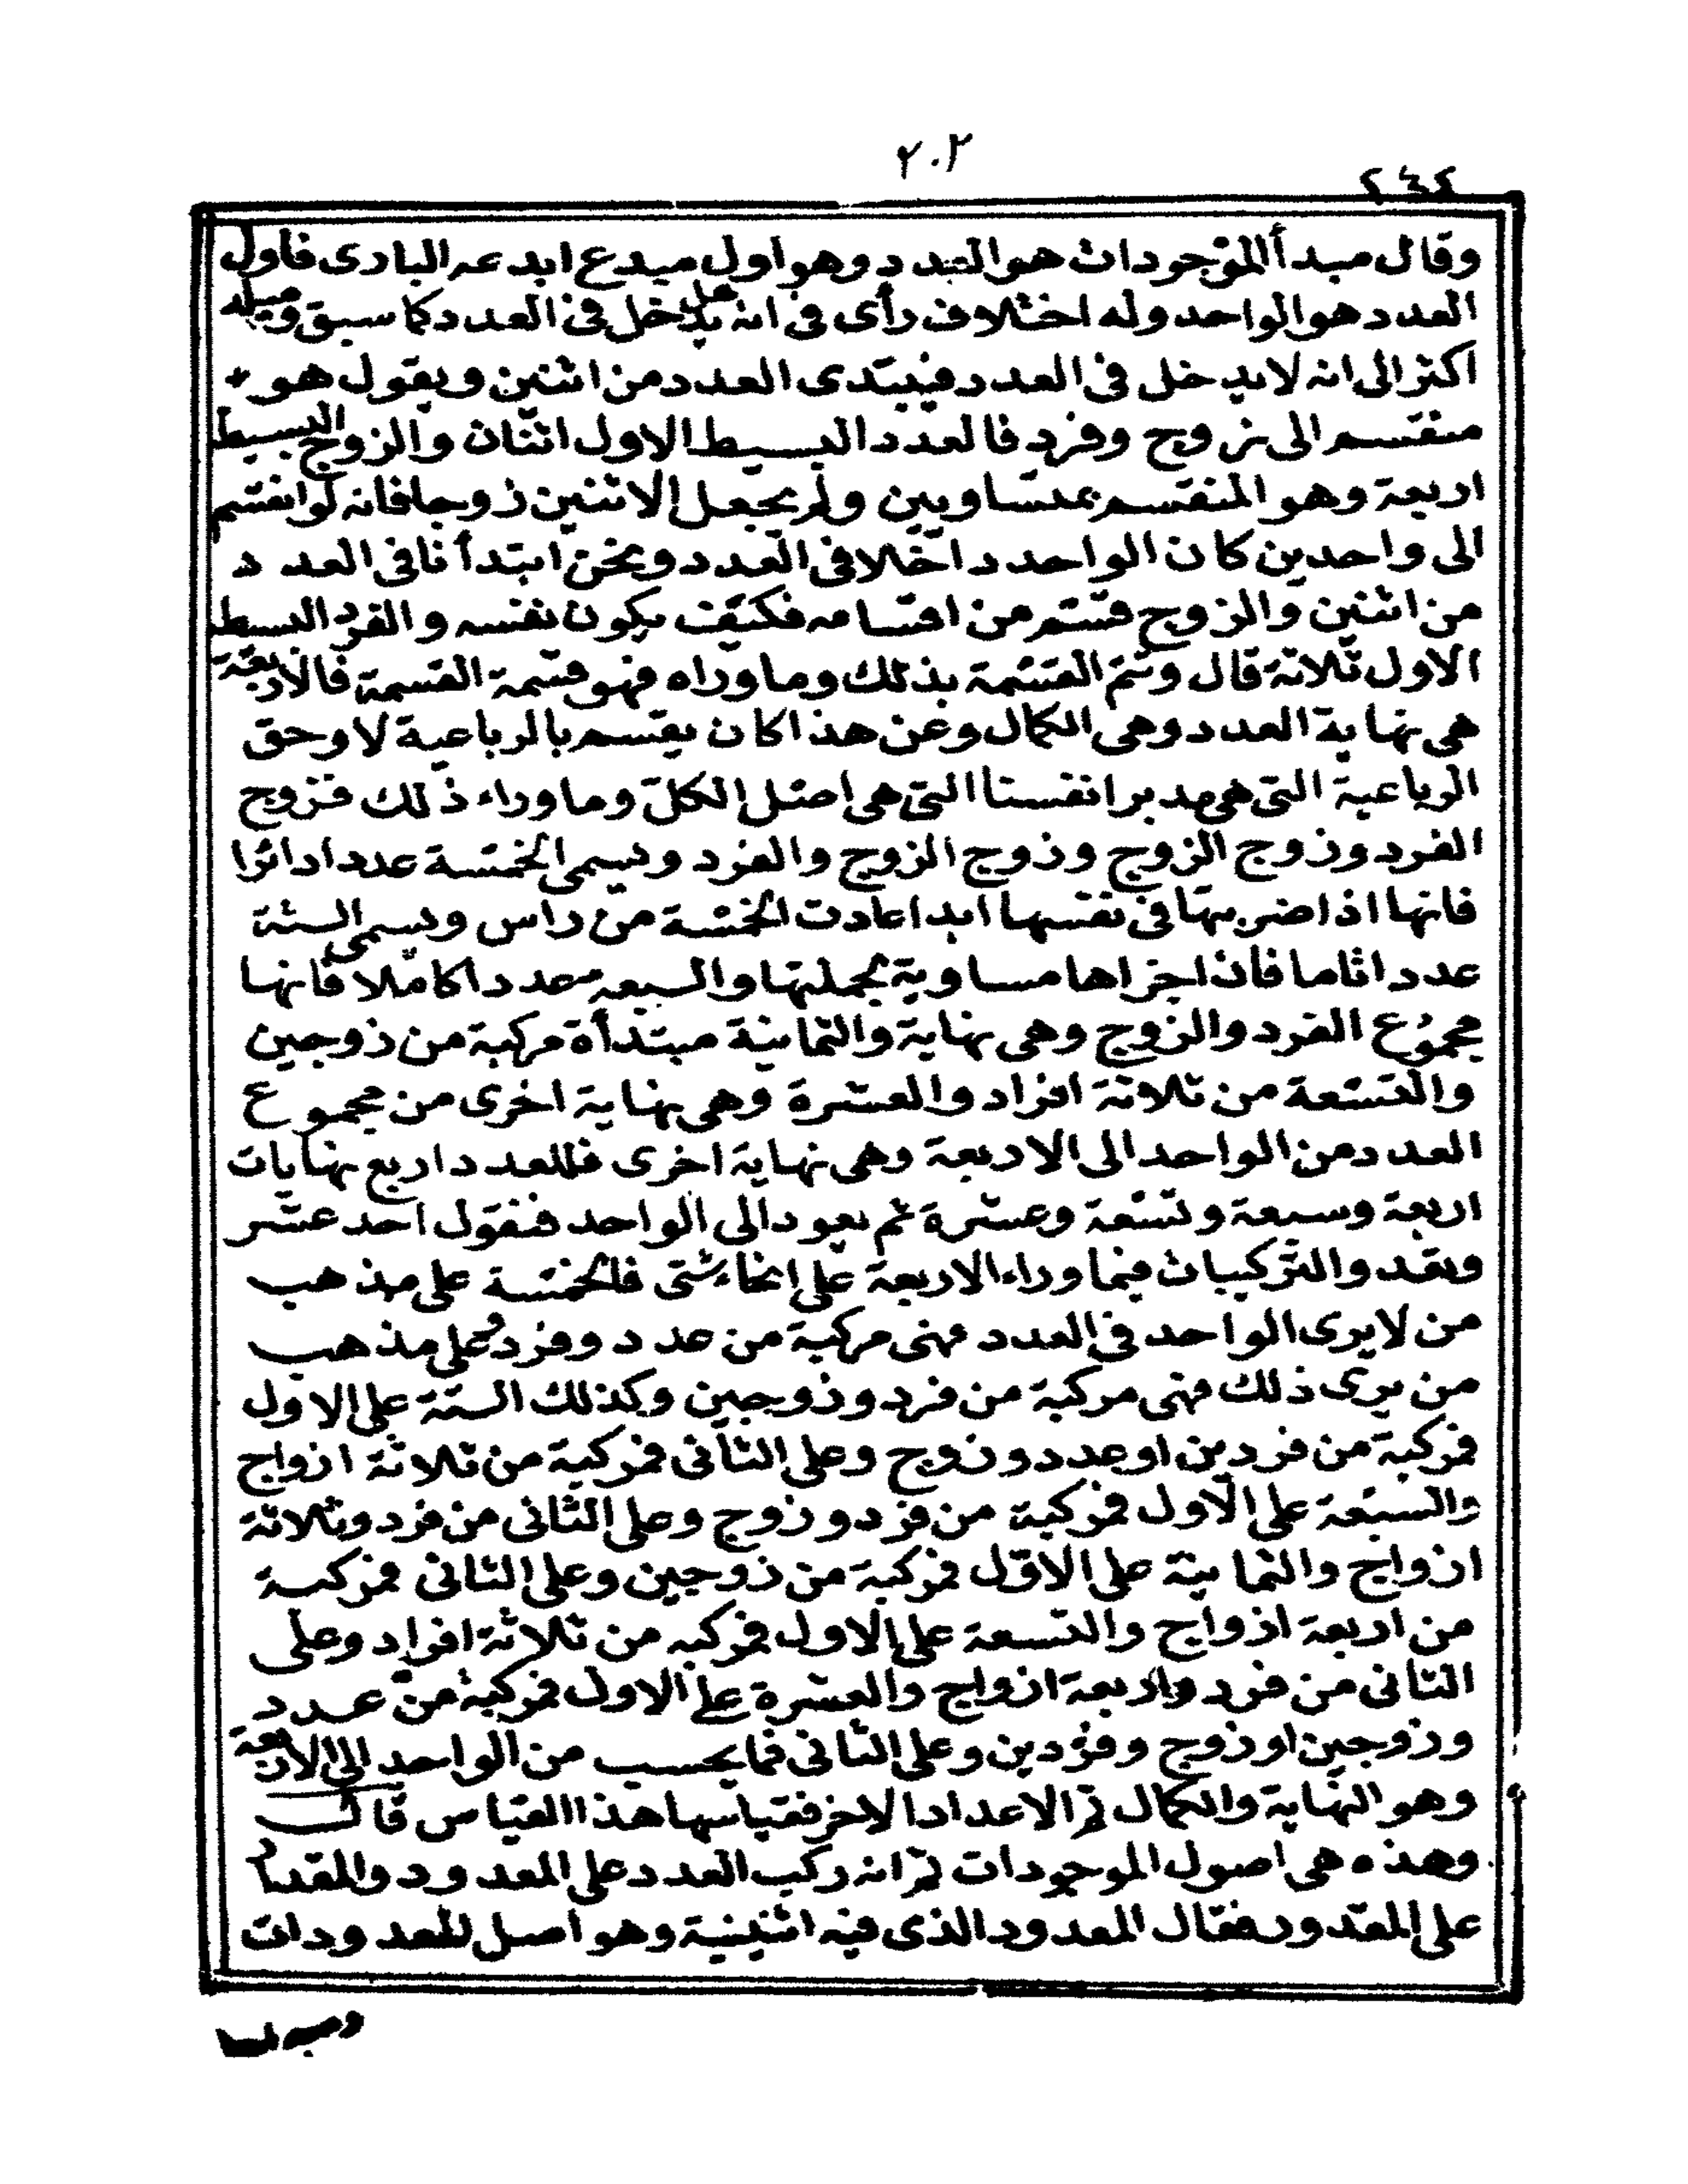 ٢٠٢
٢٤٤
وقال مبدأ الموجودات هو العدد وهو اول مبدع ابدعه البارى فاول
العدد هو الواحد وله اختلاف رأى فى انه هل يدخل فى العدد كما سبق وميله
اكثر الى انه لا يدخل فى العدد فيبتدى العدد من اثنين ويقول هو
منقسم الى زوج وفرد فالعدد البسيط الاول اثنان والزوج البسيط
اربعة وهو المنقسم بمتساويين ولم يجعل الاثنين زوجا فانه لو انقسم
الى واحدين كان الواحد داخلا فى العدد ونحن ابتدأنا فى العدد
من اثنين والزوج قسم من اقسامه فكيف يكون نفسه والفرد البسيط
الاول ثلاثة قال وتتم القسمة بذلك وما وراه فهو قسمة القسمة فالاربعة
هى نهاية العدد وهى الكمال وعن هذا كان يقسم بالرباعية لا وحق
الرباعية التى هى مدبر انفسنا التى هى اصل الكل وما وراء ذلك فزوج
الفرد وزوج الزوج وزوج الزوج والفرد ويسمى الخمسة عددا دائرا
فانها اذا ضربتها فى نفسها ابدا عادت الخمسة من راس ويسمى الستة
عددا تاما فان اجزاها مساوية بجملتها والسبعه عددا كاملا فانها
مجموع الفرد والزوج وهى نهاية والثمانية مبتدأة مركبة من زوجين
والتسعة من ثلاثة افراد والعشرة وهى نهاية اخرى من مجموع
العدد من الواحد الى الاربعة وهى نهاية اخرى فللعدد اربع نهايات
اربعة وسبعة وتسعة وعشرة ثم يعود الى الواحد فنقول احد عشر
ويعد والتركيبات فيما وراء الاربعة على انحاء شتى فالخمسة على مذهب
من لا يرى الواحد فى العدد فهى مركبة من عدد وفرد وعلى مذهب
من يرى ذلك فهى مركبة من فرد وزوجين وكذلك الستة على الاول
فمركبة من فردين او عدد وزوج وعلى الثانى فمركبة من ثلاثة ازواج
والسبعة على الاول فمركبة من فرد وزوج وعلى الثانى من فرد وثلاثة
ازواج والثمانية على الاول فمركبة من زوجين وعلى الثانى فمركبة
من اربعة ازواج والتسعة على الاول فمركبه من ثلاثة افراد وعلى
الثانى من فرد واربعة ازواج والعشرة على الاول فمركبة من عدد
وزوجين او زوج وفردين وعلى الثانى فما يحسب من الواحد الى الاربعة
وهو النهاية والكمال ثم الاعداد الاخر فقياسها هذا القياس قال
وهذه هى اصول الموجودات ثم انه ركب العدد على المعدود والمقدار
على المقدور فقال المعدود الذى فيه اثنينية وهو اصل للمعدودات